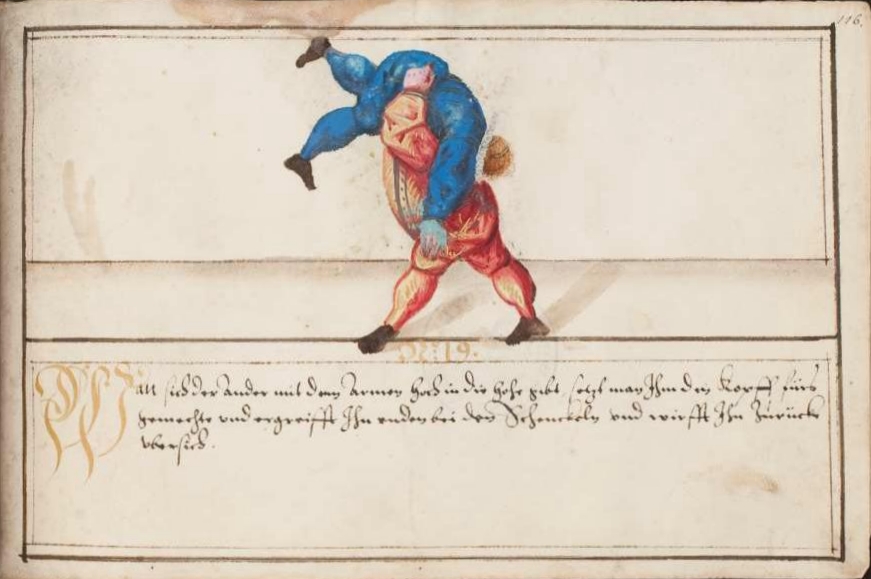 116.
N: 19.
Wan sich der Ander mit dem Armen hoch in die höhe gibt, setzt man Ihm den Kopff fürs
gemechte vnd ergreifft Ihn unden bei den Schenckeln vnd wirfft Ihn Zurück
vbersich.